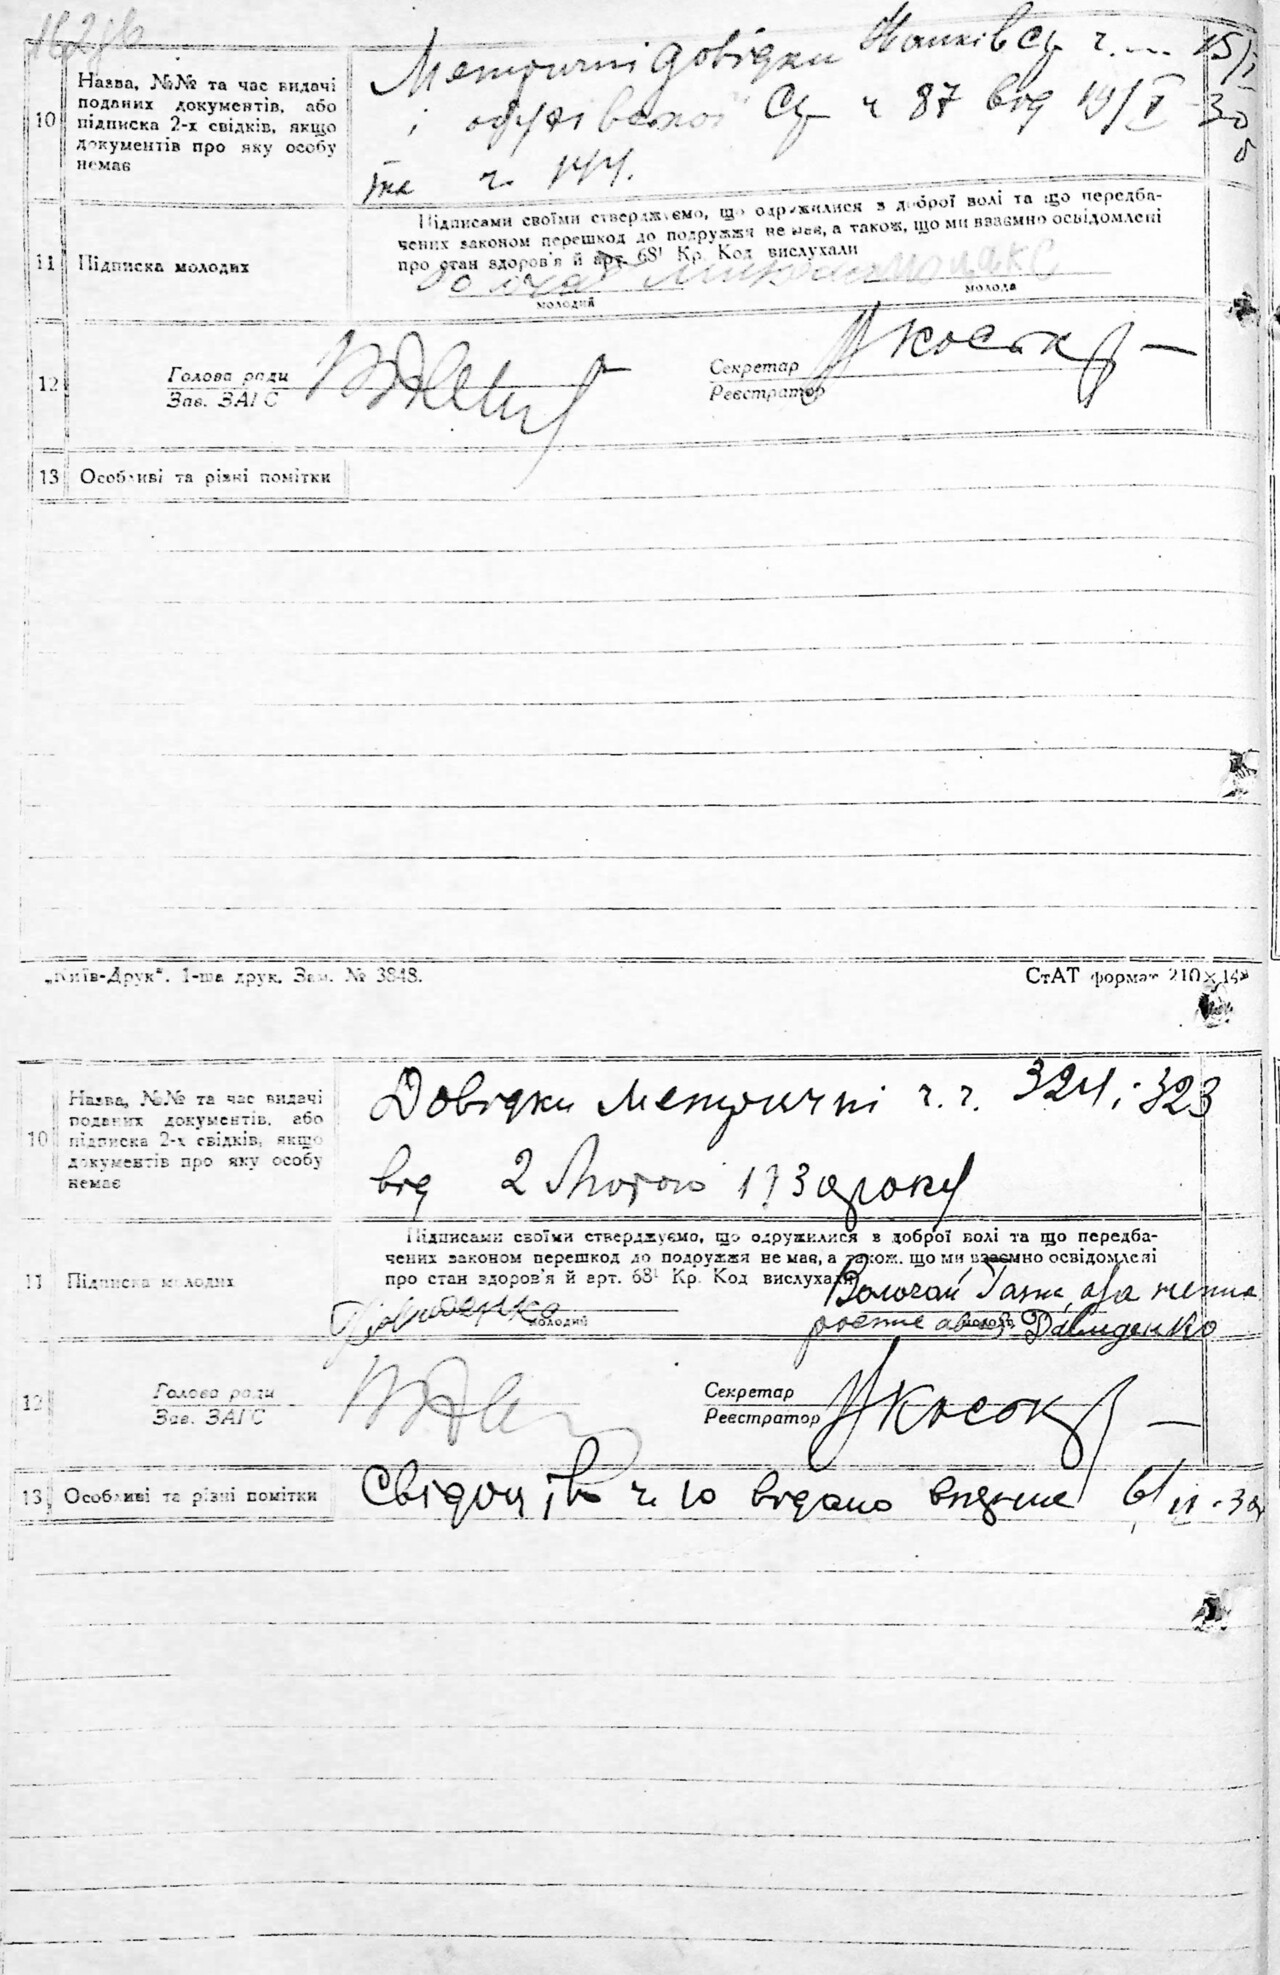 10
Назва, №№ та час видачі
поданих документів, або
підписка 2-х свідків, якщо
документів про яку особу
немає
Метричні довідки
і СР ч 87 від 19/I-30
та ч. 144.
11
Підписка молодих
Підписами своїми стверджуємо, що одружилися з доброї волі та що передба-
чених законом перешкод до подружжя не має, а також, що ми взаємно освідомлені
про стан здоров'я й арт. 68¹ Кр. Код вислухали
молодий
молода
12
Голова ради
Зав. ЗАГС
Секретар
Реєстратор
Укосок
13
Особливі та різні помітки
„Київ-Друк". 1-ша друк. Зам. № 3848.
СтАТ формат 210×148
10
Назва, №№ та час видачі
поданих документів, або
підписка 2-х свідків, якщо
документів про яку особу
немає
Довідки метричні ч.ч. 324 і 323
від 2 Лютого 1930 року
11
Підписка молодих
Підписами своїми стверджуємо, що одружилися в доброї волі та що передба-
чених законом перешкод до подружжя не має, а також, що ми взаємно освідомлені
про стан здоров'я й арт. 68¹ Кр. Код вислухали
Давиденко
молодий
Волочай Ганна, а за
молода
Давиденко
12
Голова ради
Зав. ЗАГС
Секретар
Реєстратор
Укосок
13
Особливі та різні помітки
Свідоцтво ч. 10 видано 6/II-30